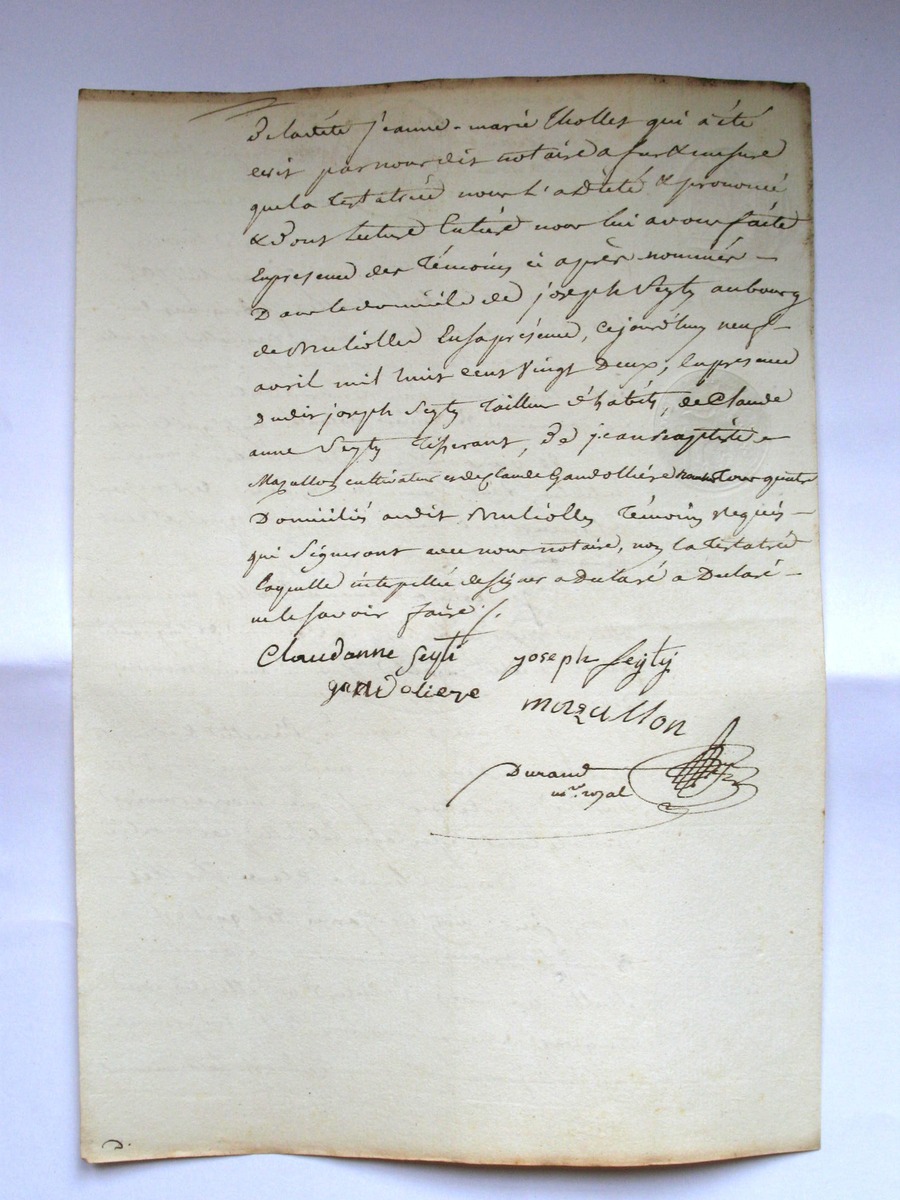 De ladite jeanne-marie Thollet qui à été
ecrit par nous dit notaire a fur & mesure
que la Testatrice nous l'a Dicté & prononcé
& Dont Lecture Entiere nous lui avons faite
En presence des Témoins ci après nommés
Dans le domicile de joseph Seyty au bourg
de En sa présence, cejourd'huy neuf
avril mil huit cent vingt Deux, En presence
dudit joseph Seyty Tailleur d'habits, de Claude
anne Seyty Tisserant, De jean Baptiste
Mazullon cultivateur et de Claude Gandolliére tous quatre
Domiciliés audit Témoins Requis
qui Signeront avec nous notaire, non la Testatrice
Laquelle intepellée de signer a Declaré a Declaré
ne le savoir faire ./.
Claudanne Seyti joseph Seytÿ
gandoliere mazullon
Durand
no.re royal